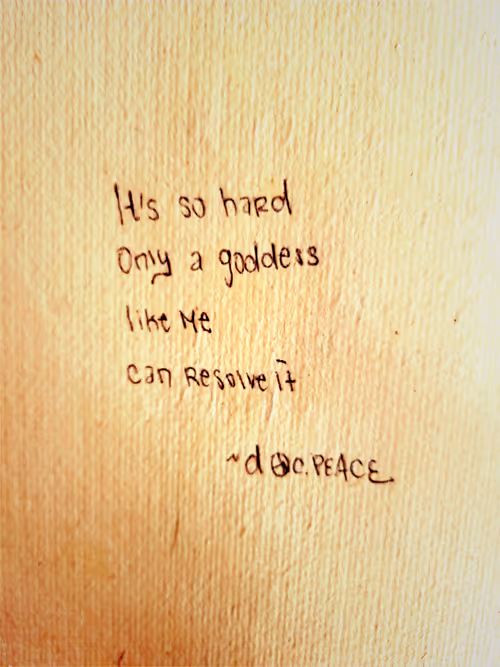 It's so hard
Only a goddess
like Me
can Resolve it
~d☮c.PEACE